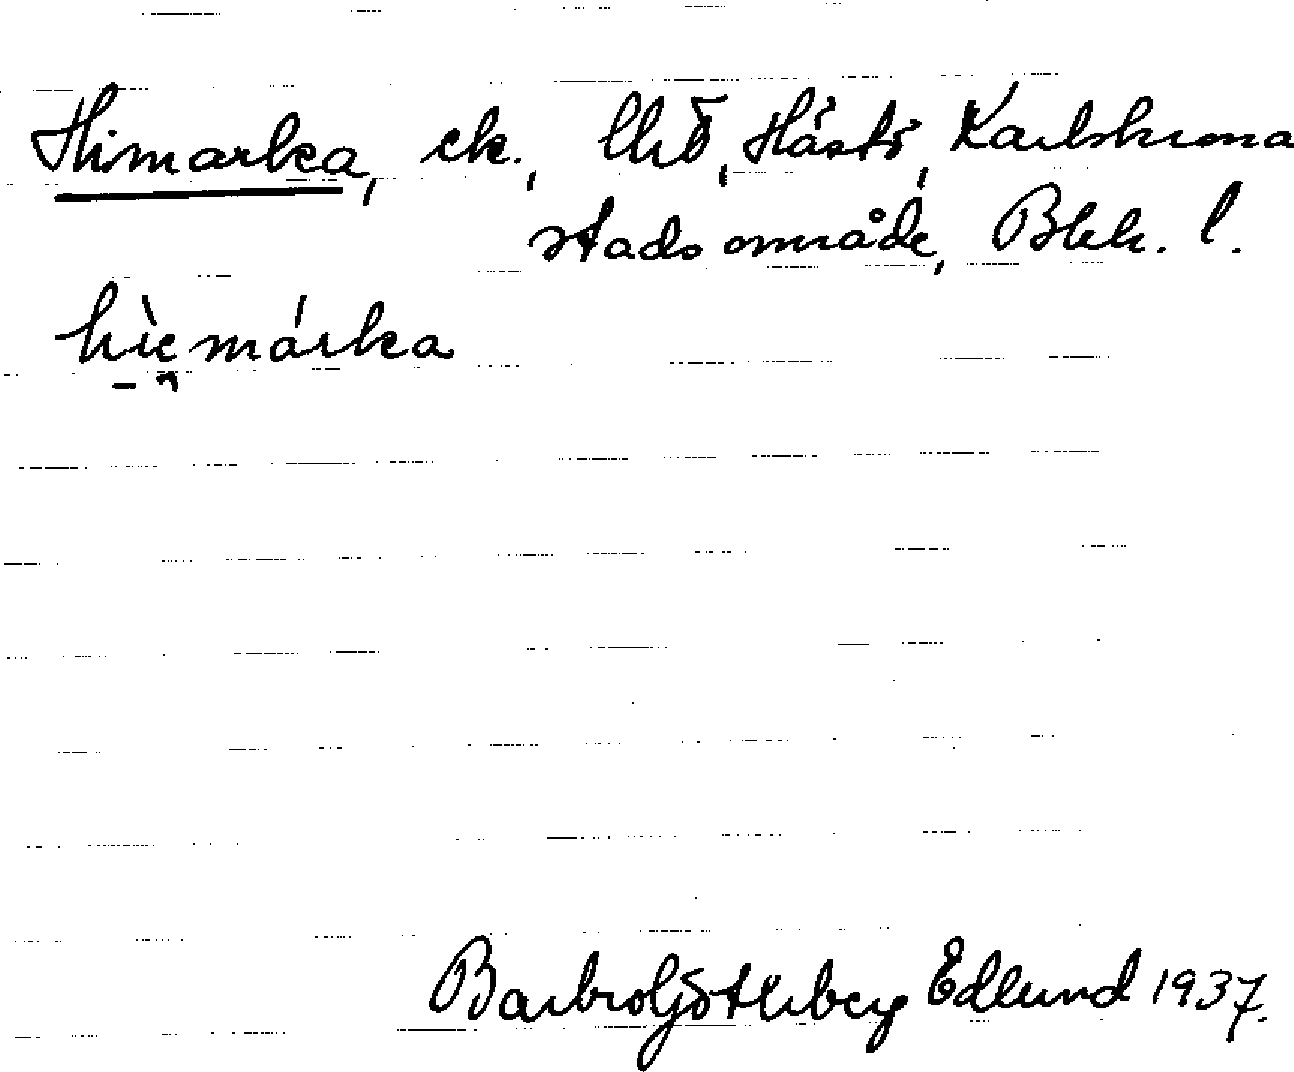 Himarka, ek., Uvö, Hästö, Karlskrona
stadsområde, Blek. l.
hìemárka
Barbro Götlberg Edlund 1937.